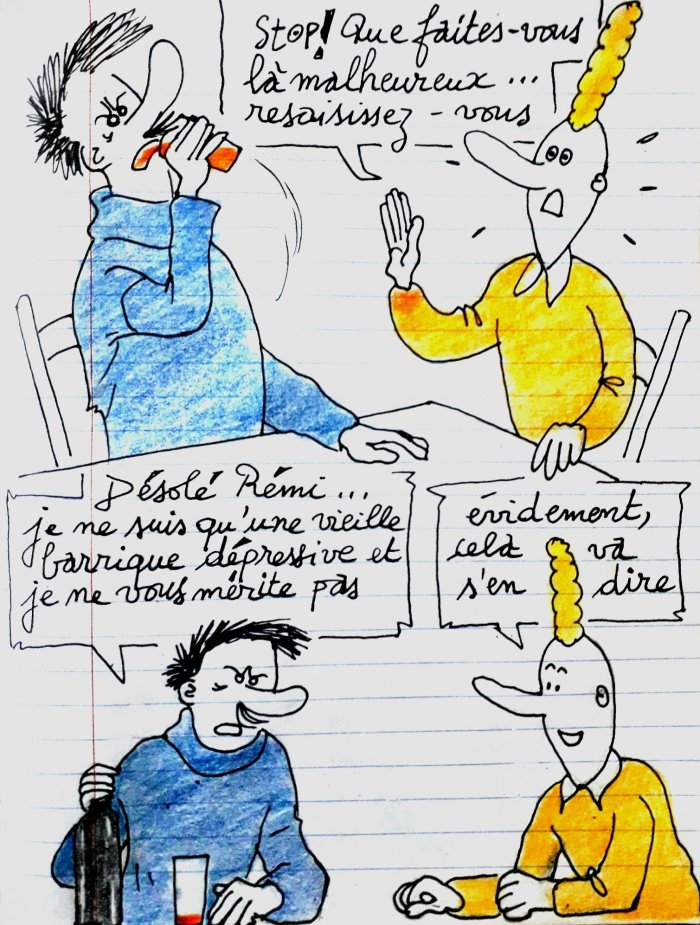 Stop! Que faites-vous
là malheureux ...
resaisissez-vous
Désolé Rémi ...
je ne suis qu'une vieille
barrique dépressive et
je ne vous mérite pas
évidement,
celà va
s'en dire